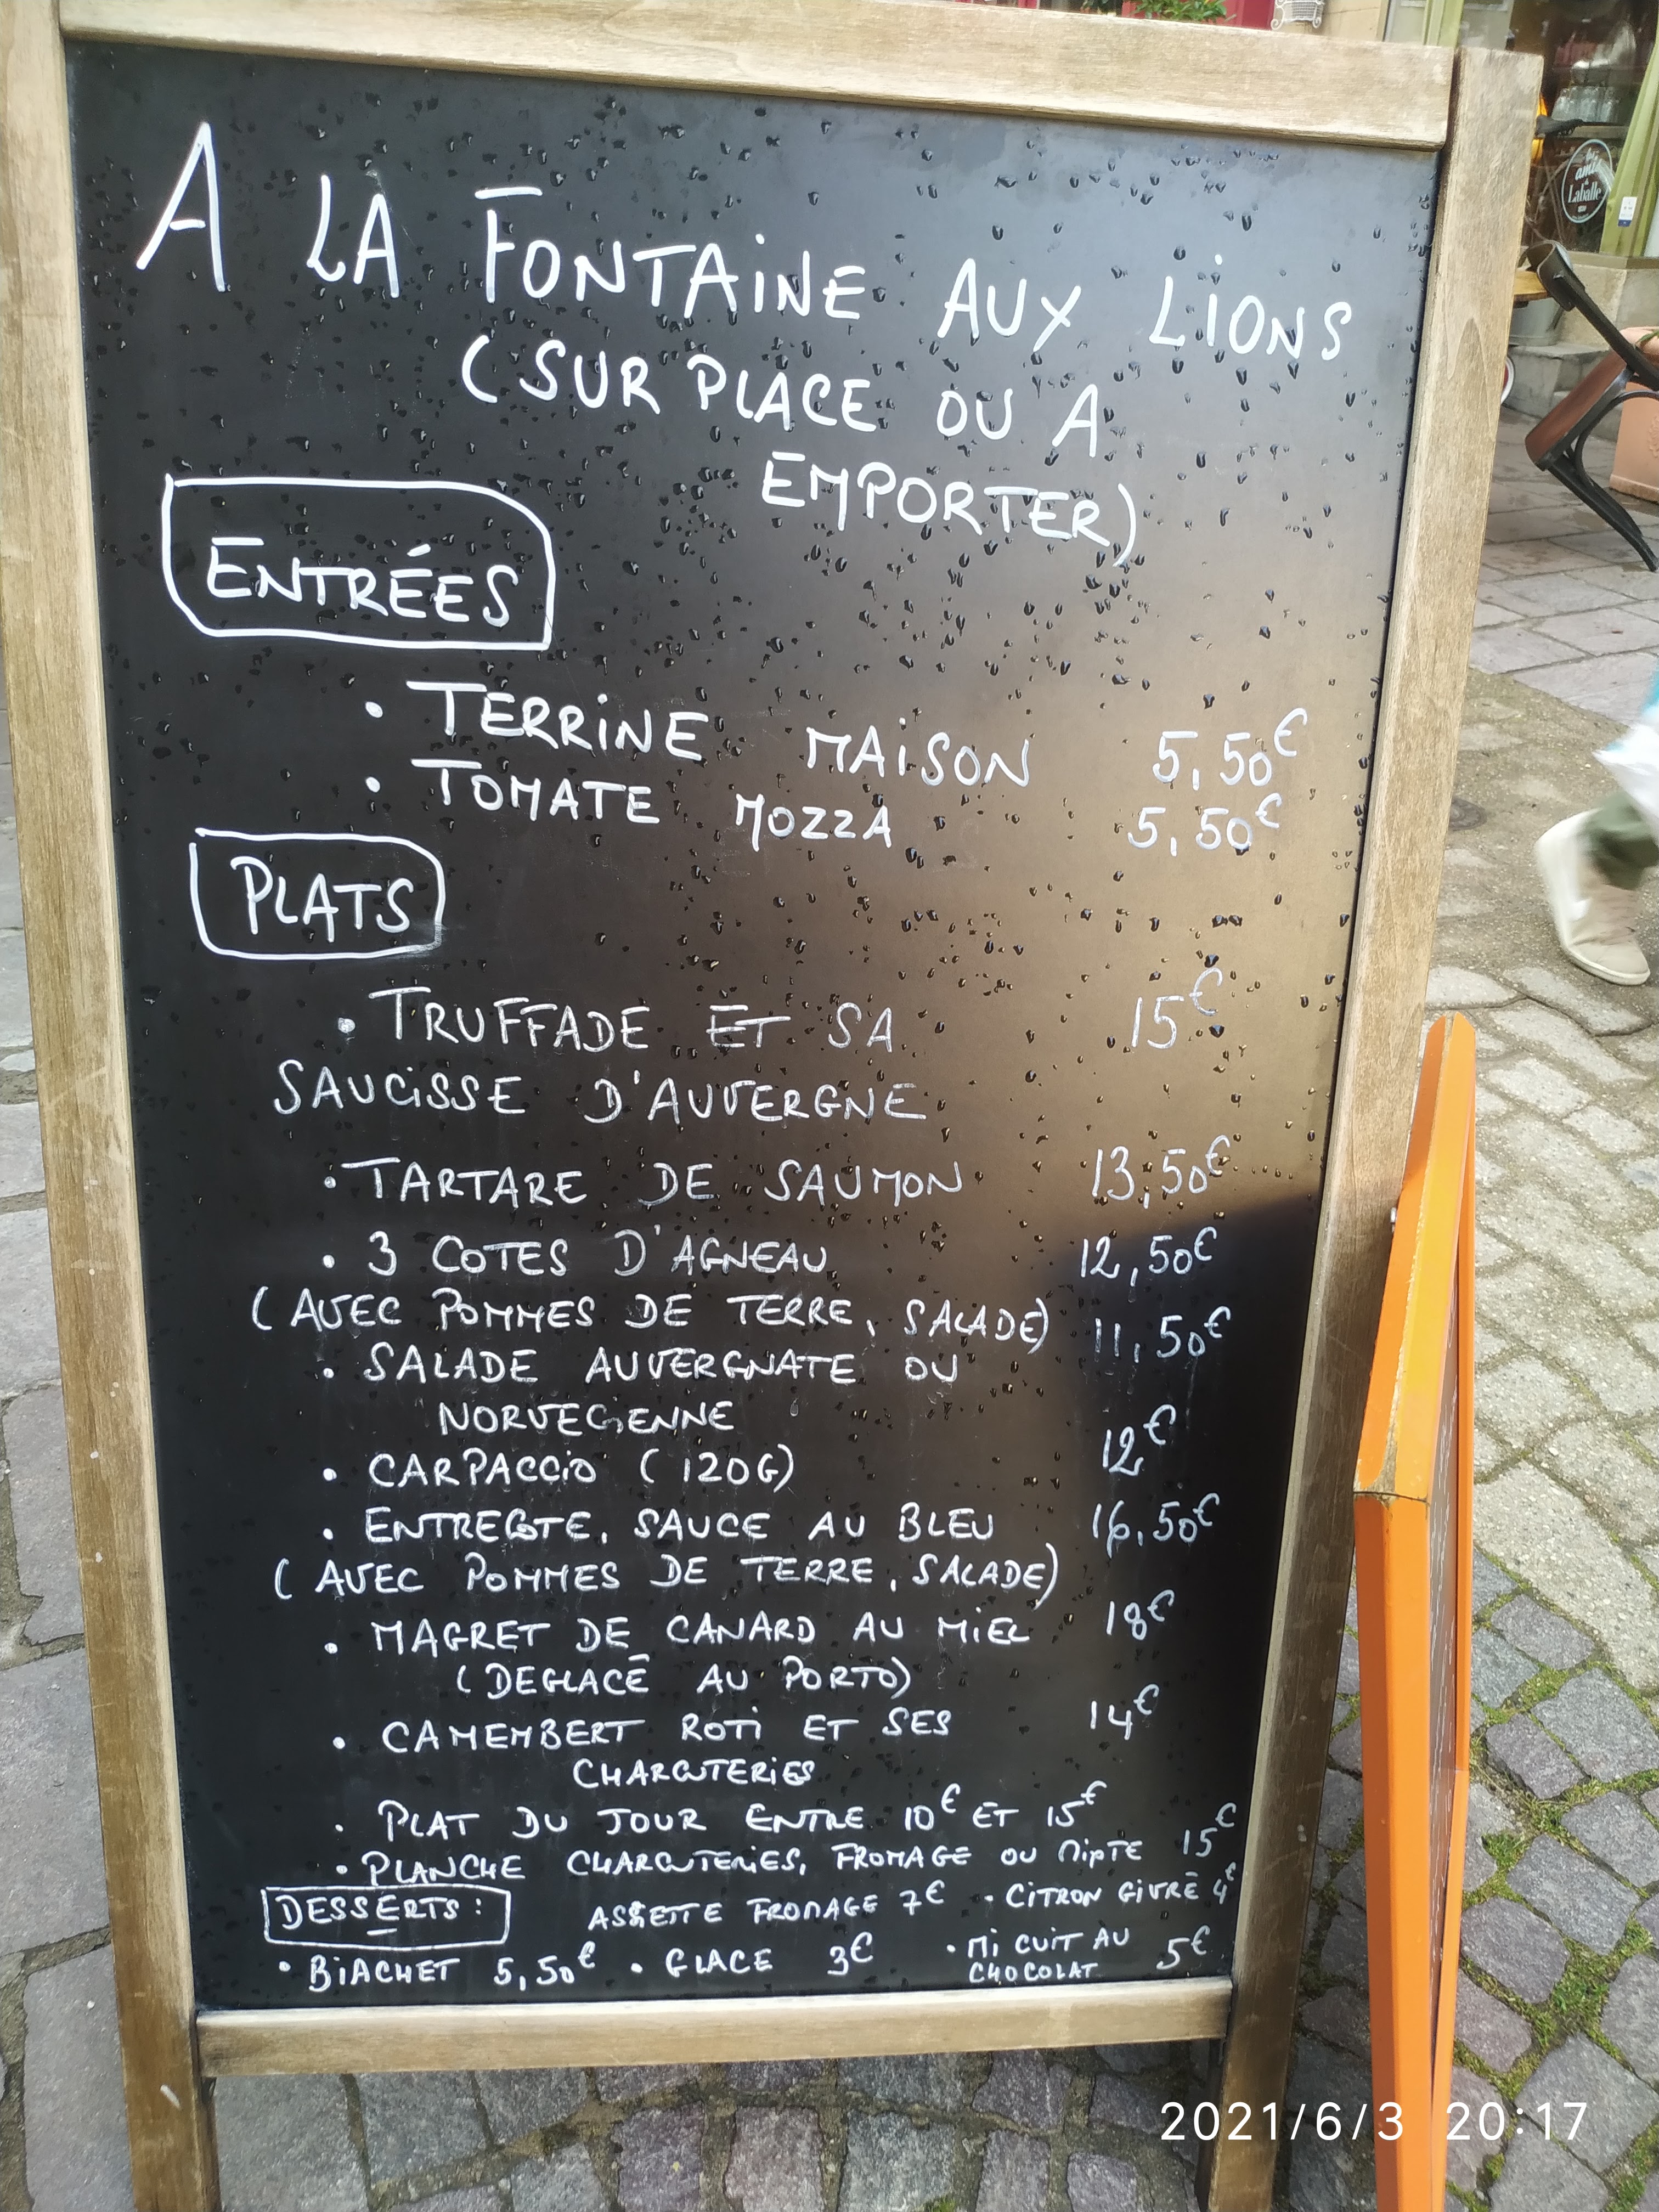 A LA FONTAINE AUX LIONS
(SUR PLACE OU A
EMPORTER)
ENTRÉES
• TERRINE MAISON 5,50€
• TOMATE MOZZA 5,50€
PLATS
• TRUFFADE ET SA 15€
SAUCISSE D'AUVERGNE
• TARTARE DE SAUMON 13,50€
• 3 COTES D'AGNEAU 12,50€
(AVEC POMMES DE TERRE, SALADE) 11,50€
• SALADE AUVERGNATE OU
NORVEGENNE
• CARPACCIO (120G) 12€
• ENTRECOTE, SAUCE AU BLEU 16,50€
(AVEC POMMES DE TERRE, SALADE)
• MAGRET DE CANARD AU MIEL 18€
(DEGLACÉ AU PORTO)
• CAMEMBERT ROTI ET SES 14€
CHARCUTERIES
• PLAT DU JOUR ENTRE 10€ ET 15€
• PLANCHE CHARCUTERIES, FROMAGE OU MIXTE 15€
DESSERTS: ASSIETTE FROMAGE 7€ • CITRON GIVRÉ 4€
• BIACHET 5,50€ • GLACE 3€ • MI CUIT AU CHOCOLAT 5€
amie
Laballe
2021/6/3 20:17